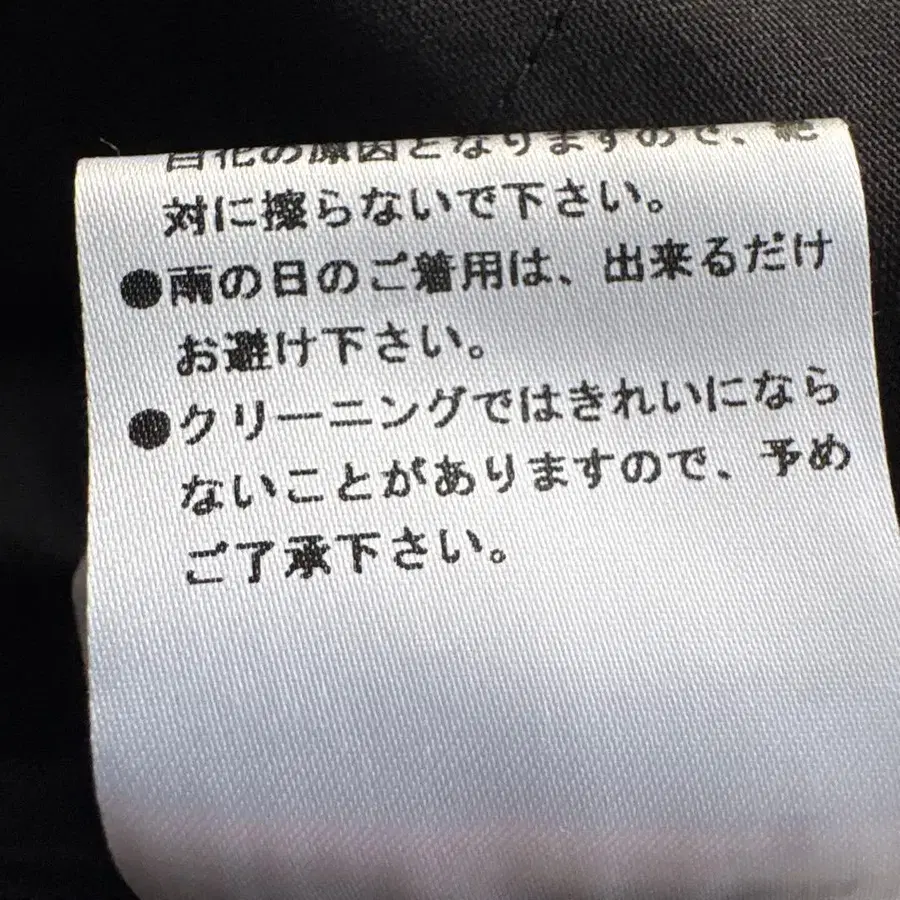 白化の原因となりますので、絶
対に擦らないで下さい。
●雨の日のご着用は、出来るだけ
お避け下さい。
●クリーニングではきれいになら
ないことがありますので、予め
ご了承下さい。